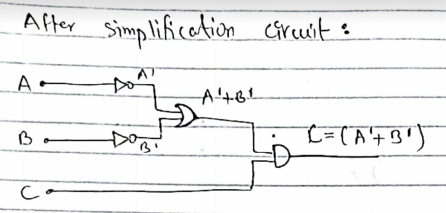 After simplification circuit :
A
A'
A'+B'
B
B'
C=(A'+B')
C